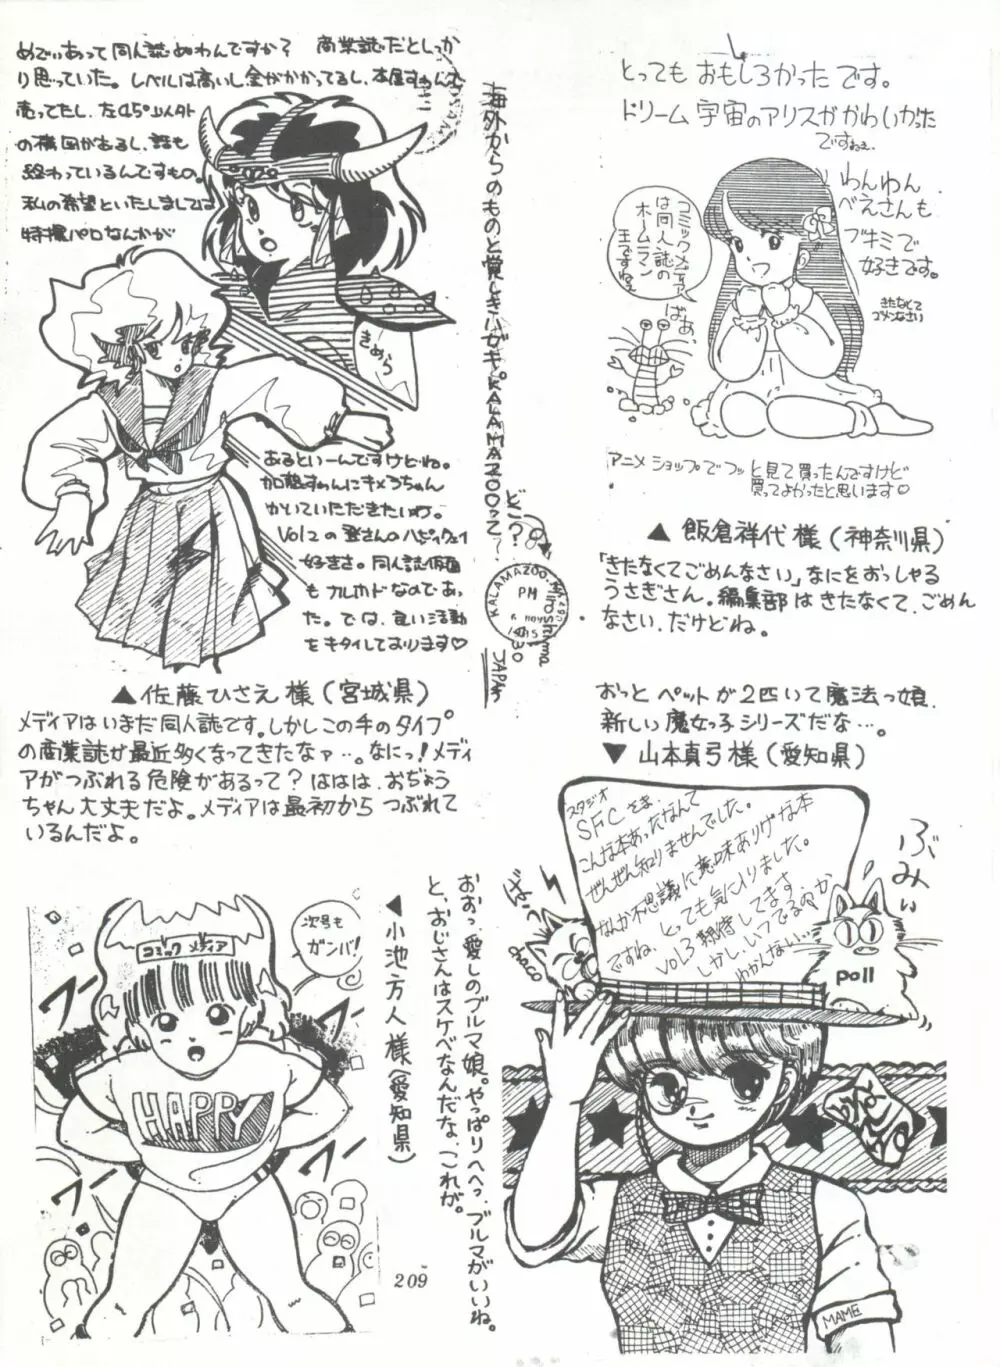 めでぃあって同人誌なんですか？ 商業誌だとしっか
り思っていた。レベルは高いし金がかかってるし、本屋さんで
売ってたし、左45°以外
の構図があるし、話も
終わっているんですもの。
私の希望といたしましては
特撮パロなんかが
あるといーんですけどね。
加藤さんにキメらちゃん
かいていただきたいわ。
Vol2の登さんのハピィウェイ
好きさ。同人誌仮面
もカルカドなのであっ
た。では、良い活動
をキタイしております♡
きめら
海外からのものと覚しきハガキ。KALAMAZOOって
どこ？
KALAMAZOO,
PM
Hiroshima
730
JAPAN
▲佐藤ひさえ様（宮城県）
メディアはいまだ同人誌です。しかしこの手のタイプ
の商業誌が最近多くなってきたなァ…。なにっ！メディ
アがつぶれる危険があるって？ははは、おぢょう
ちゃん大丈夫だよ。メディアは最初からつぶれて
いるんだよ。
とっても おもしろかったです。
ドリーム宇宙のアリスがかわいかった
ですねぇ
わんわん
べえさんも
ブキミで
好きです。
きたなくて
ゴメンなさい
コミックメディア
は同人誌の
ホームラン
王ですね
ばぁ
アニメショップでフッと見て買ったんですけど
買ってよかったと思います♡
▲飯倉祥代様（神奈川県）
「きたなくてごめんなさい」なにをおっしゃる
うさぎさん。編集部はきたなくて、ごめん
なさい、だけどね。
おっとペットが2匹いて魔法っ娘、
新しい魔女っ子シリーズだな…。
▼山本真弓様（愛知県）
スタジオ
SFCさま
こんな本あったなんて
ぜんぜん知りませんでした。
なんか不思議に意味ありげな本
ですね、とっても気に入りました。
vol3期待してます
しかしいつでるのか
わかんない…
ぶみぃ
chaco
poll
MAME
次号も
ガンバ！
コミックメディア
HAPPY
ワー
ワー
◀小池方人様（愛知県）
おおっ、愛しのブルマ娘。やっぱりへへっ、ブルマがいいね。
と、おじさんはスケベなんだな、これが。
209